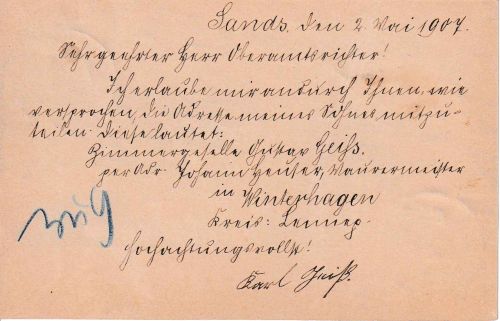 Sands, den 2. Mai 1907.
Sehr geehrter Herr Oberamtsrichter!
Ich erlaube mir andurch Ihnen, wie
versprochen, die Adresse meines Sohnes mitzu-
teilen. Diese lautet:
Zimmergeselle Gustav Geiß.
per Adr. Johann Heuser, Maurermeister
in Winterhagen
Kreis: Lennep.
Hochachtungsvollst!
Karl Geiß.